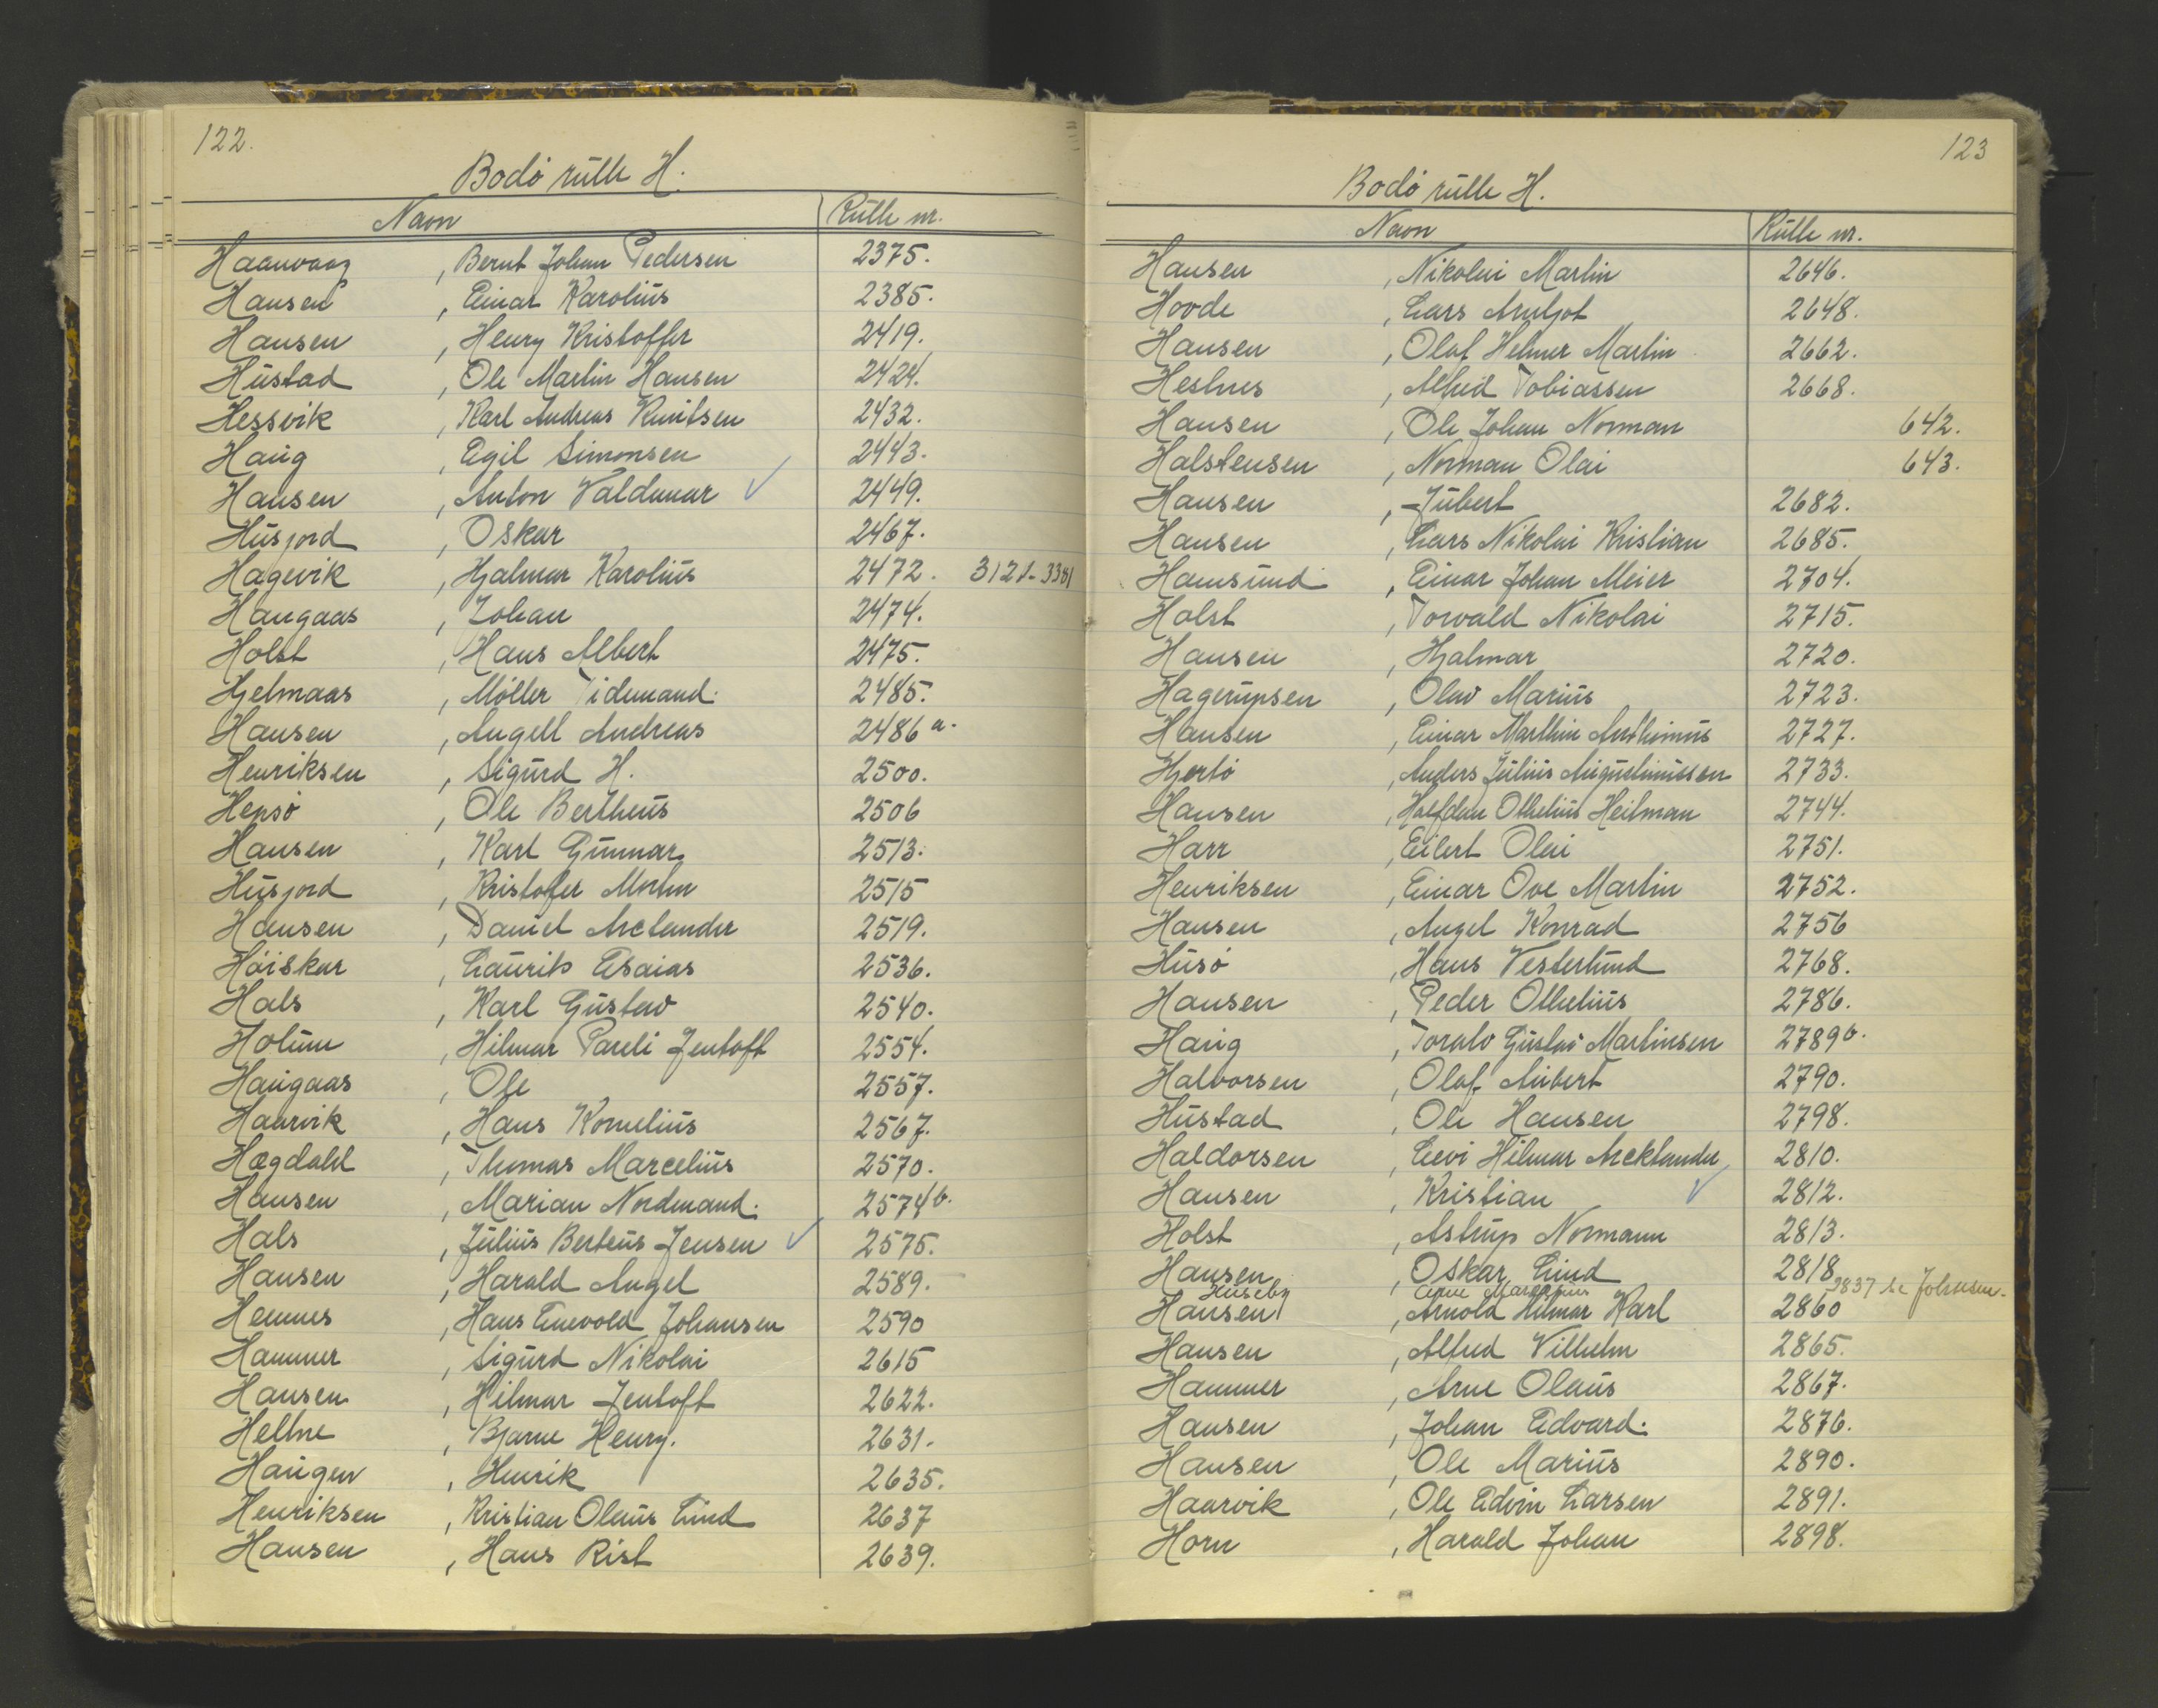 122.
Bodø rulle H.
Navn Rulle nr.
Haanvaag, Bernt Johan Pedersen 2375.
Hansen, Einar Karolius 2385.
Hansen, Henry Kristoffer 2419.
Hustad, Ole Martin Hansen 2424.
Hessvik, Karl Andreas Knutsen 2432.
Haug, Egil Simonsen 2443.
Hansen, Anton Valdemar ✓ 2449.
Husjord, Oskar 2467.
Hagevik, Hjalmar Karolius 2472. 3121-3381
Haugaas, Johan 2474.
Holst, Hans Albert 2475.
Hjelmaas, Møller Tidemand. 2485.
Hansen, Angell Andreas 2486 a.
Henriksen, Sigurd H. 2500.
Hepsø, Ole Bertheus 2506
Hansen, Karl Gunnar 2513.
Husjord, Kristofer Morten 2515
Hansen, Daniel Arelander 2519.
Høiskar, Laurits Esaias 2536.
Hals, Karl Gustav 2540.
Holum, Hilmar Pareli Jentoft 2554.
Haugaas, Ole 2557.
Haarvik, Hans Kornelius 2567.
Hægdahl, Thomas Marcelius 2570.
Hansen, Marian Nordmand. 2574 b.
Hals, Julius Berteus Jensen ✓ 2575.
Hansen, Harald Angel 2589.
Hemnes, Hans Enevold Johansen 2590
Hammer, Sigurd Nikolai 2615
Hansen, Hilmar Jentoft 2622.
Heltne, Bjarne Henry. 2631.
Haugen, Henrik 2635.
Henriksen, Kristian Olaus Lind 2637
Hansen, Hans Rist 2639.
123
Bodø rulle H.
Navn Rulle nr.
Hansen, Nikolai Martin 2646.
Hovde, Lars Arnljot 2648.
Hansen, Olaf Helmer Martin 2662.
Hestnes, Alfred Tobiassen 2668.
Hansen, Ole Johan Norman 642.
Halstensen, Norman Olai 643.
Hansen, Jubert 2682.
Hansen, Lars Nikolai Kristian 2685.
Hamsund, Einar Johan Meier 2704.
Holst, Torvald Nikolai 2715.
Hansen, Hjalmar 2720.
Hagerupsen, Olav Marius 2723.
Hansen, Einar Marthin Anthimus 2727.
Hjertø, Anders Julius Augustinussen 2733.
Hansen, Halfdan Othelius Heilman 2744.
Harr, Eilert Olai 2751.
Henriksen, Einar Ove Martin 2752.
Hansen, Angel Konrad 2756
Husø, Hans Vesterlund 2768.
Hansen, Peder Othelius 2786.
Haug, Toralv Gustav Martinsen 2789 b.
Halvorsen, Olaf Aubert 2790.
Hustad, Ole Hansen 2798.
Haldorsen, Levi Hilmar Areklander 2810.
Hansen, Kristian ✓ 2812.
Holst, Astrup Normann 2813.
Hansen, Oskar Lind 2818
Huseby Arne 2837 se Johnsen.
Hansen, Arnold Hilmar Karl 2860
Hansen, Alfred Vilhelm 2865.
Hammer, Arne Olaus 2867.
Hansen, Johan Edvard. 2876.
Hansen, Ole Marius 2890.
Haarvik, Ole Edvin Larsen 2891.
Horn, Harald Johan 2898.